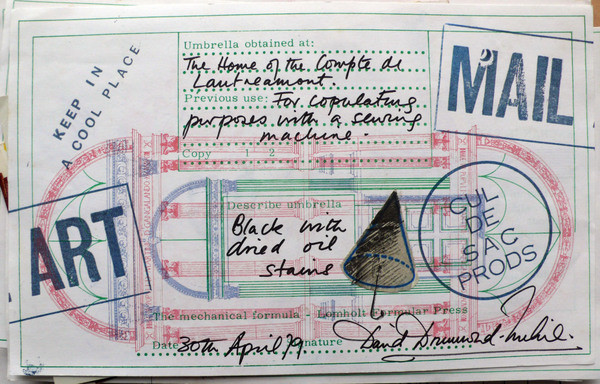 KEEP IN
A COOL PLACE
Umbrella obtained at:
The Home of the Compte de
Lautreamont
Previous use: For copulating
purposes with a sewing
machine.
Copy 1 2
MAIL
ART
Describe umbrella
Black with
dried oil
stains
CUL
DE
SAC
PRODS
The mechanical formula - Lomholt Formular Press
Date 30th April 79. Signature David Drummond-